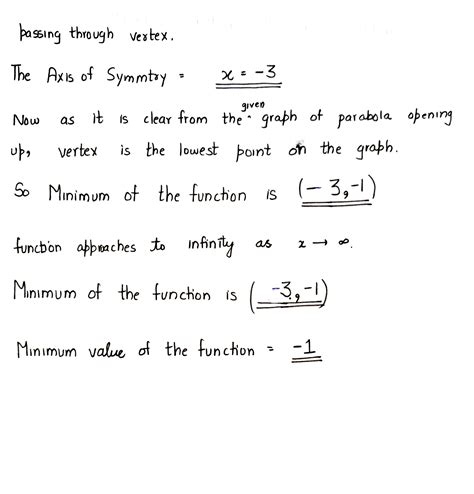 passing through vertex.
The Axis of Symmtry = x = -3
Now as it is clear from the given graph of parabola opening
up, vertex is the lowest point on the graph.
So Minimum of the function is (-3,-1)
function approaches to infinity as x → ∞.
Minimum of the function is (-3,-1)
Minimum value of the function = -1